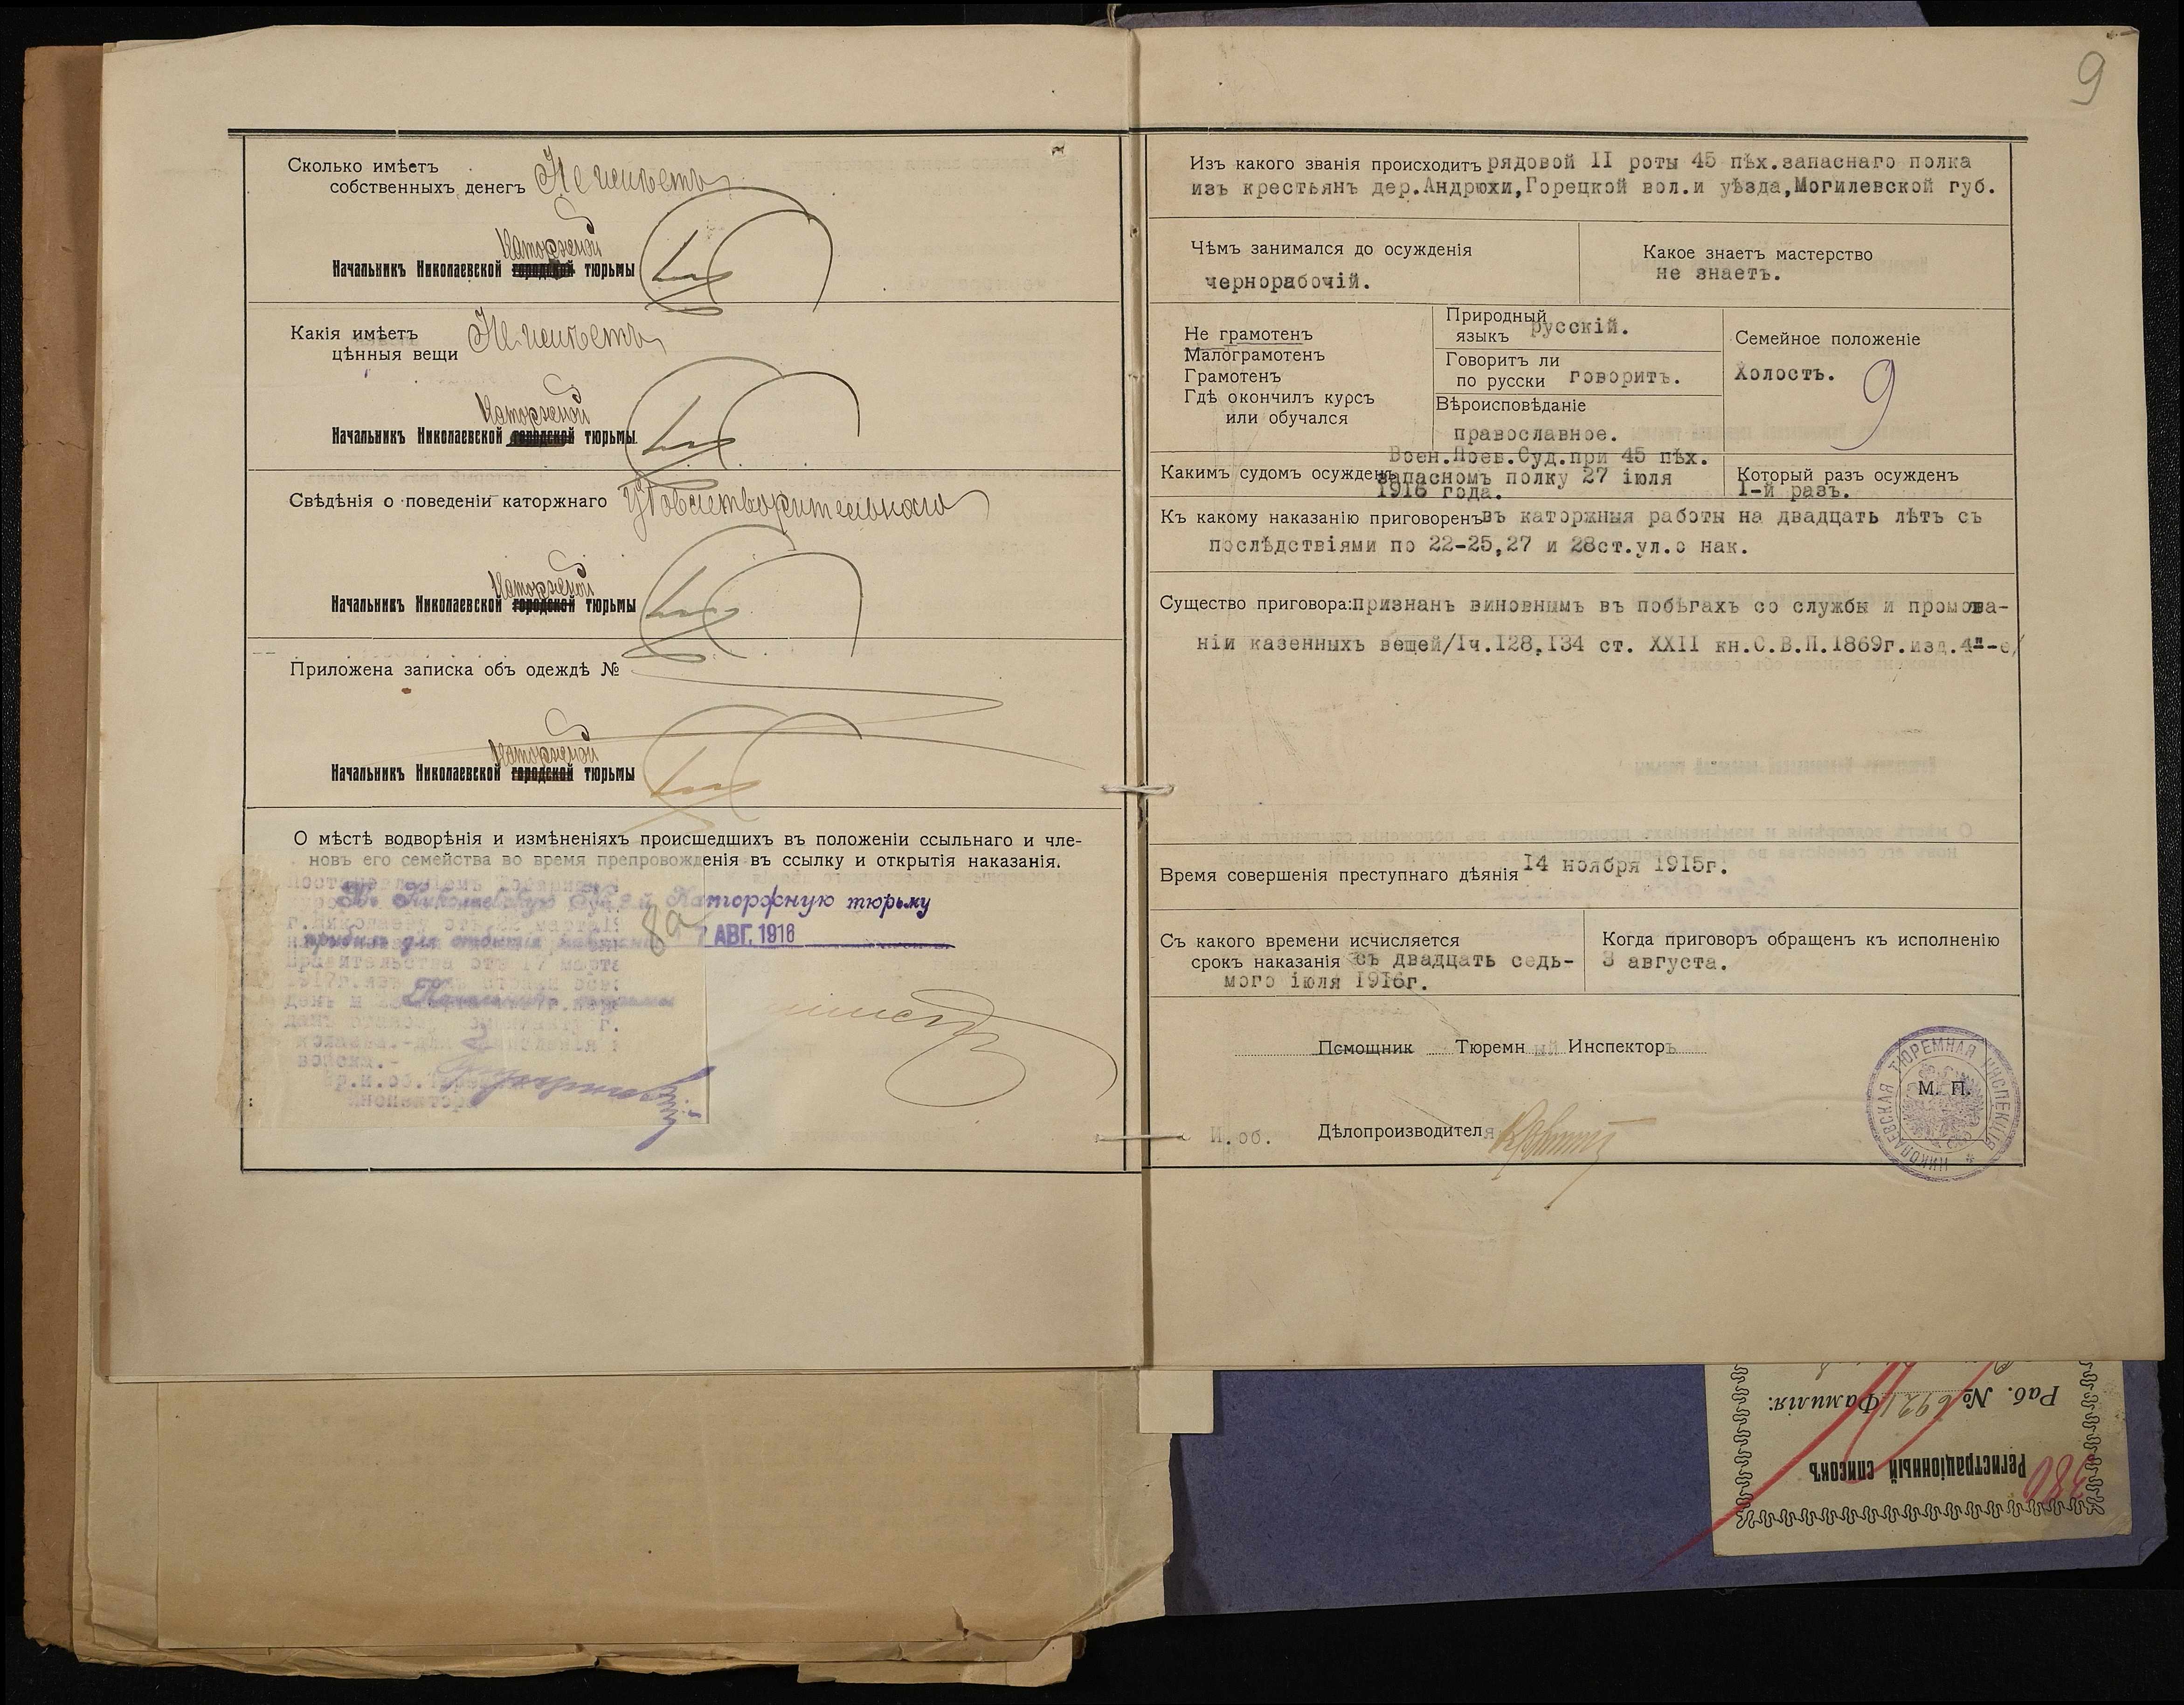 Сколько имѣетъ
собственныхъ денегъ Не имѣетъ
Каторжной
Начальникъ Николаевской городской тюрьмы
Какія имѣетъ
цѣнныя вещи Не имѣетъ
Каторжной
Начальникъ Николаевской городской тюрьмы
Свѣдѣнія о поведеніи каторжнаго удовлетворительнаго
Каторжной
Начальникъ Николаевской городской тюрьмы
Приложена записка объ одеждѣ №
Каторжной
Начальникъ Николаевской городской тюрьмы
О мѣстѣ водворѣнія и измѣненіяхъ происшедшихъ въ положеніи ссыльнаго и чле-
новъ его семейства во время препровожденія въ ссылку и открытія наказанія.
Въ Николаевскую Каторжную тюрьму
прибылъ для отбытія
8а 7 АВГ. 1916
9
Изъ какого званія происходитъ рядовой II роты 45 пѣх.запаснаго полка
изъ крестьянъ дер.Андрюхи,Горецкой вол.и уѣзда,Могилевской губ.
Чѣмъ занимался до осужденія
чернорабочій.
Какое знаетъ мастерство
не знаетъ.
Не грамотенъ
Малограмотенъ
Грамотенъ
Гдѣ окончилъ курсъ
или обучался
Природный
языкъ русскій.
Говоритъ ли
по русски говоритъ.
Вѣроисповѣданіе
православное.
Семейное положеніе
Холостъ.
9
Воен.Полев.Суд.при 45 пѣх.
Какимъ судомъ осужденъ запасномъ полку 27 іюля
1916 года.
Который разъ осужденъ
I-й разъ.
Къ какому наказанію приговоренъ въ каторжныя работы на двадцать лѣтъ съ
послѣдствіями по 22-25,27 и 28ст.ул.о нак.
Существо приговора: признанъ виновнымъ въ побѣгахъ со службы и промота-
ніи казенныхъ вещей/Iч.128,I34 ст. XXII кн.С.В.П.1869г.изд.4п-е/
Время совершенія преступнаго дѣянія I4 ноября I9I5г.
Съ какого времени исчисляется
срокъ наказанія съ двадцать седь-
мого іюля I9I6г.
Когда приговоръ обращенъ къ исполненію
3 августа.
Помощникъ Тюремный Инспекторъ
НИКОЛАЕВСКАЯ ТЮРЕМНАЯ ИНСПЕКЦІЯ
М. П.
И. об. Дѣлопроизводителя
Раб. № 6921 Фамилія:
Регистраціонный списокъ
380